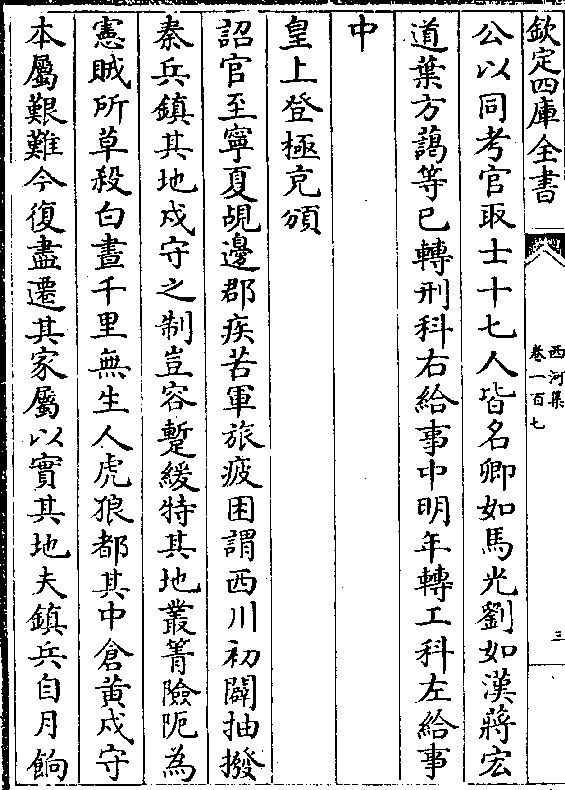 欽定四庫全書
西河集
卷一百七
三
公以同考官取士十七人皆名卿如馬光劉如漢蔣宏
道葉方藹等已轉刑科右給事中明年轉工科左給事
中
皇上登極充頒
詔官至寧夏覩邊郡疾苦軍旅疲困謂西川初闢抽撥
秦兵鎮其地戍守之制豈容蹔緩特其地叢箐險阨為
憲賊所草殺白晝千里無生人虎狼都其中倉黄戍守
本屬艱難今復盡遷其家屬以實其地夫鎮兵自月餉